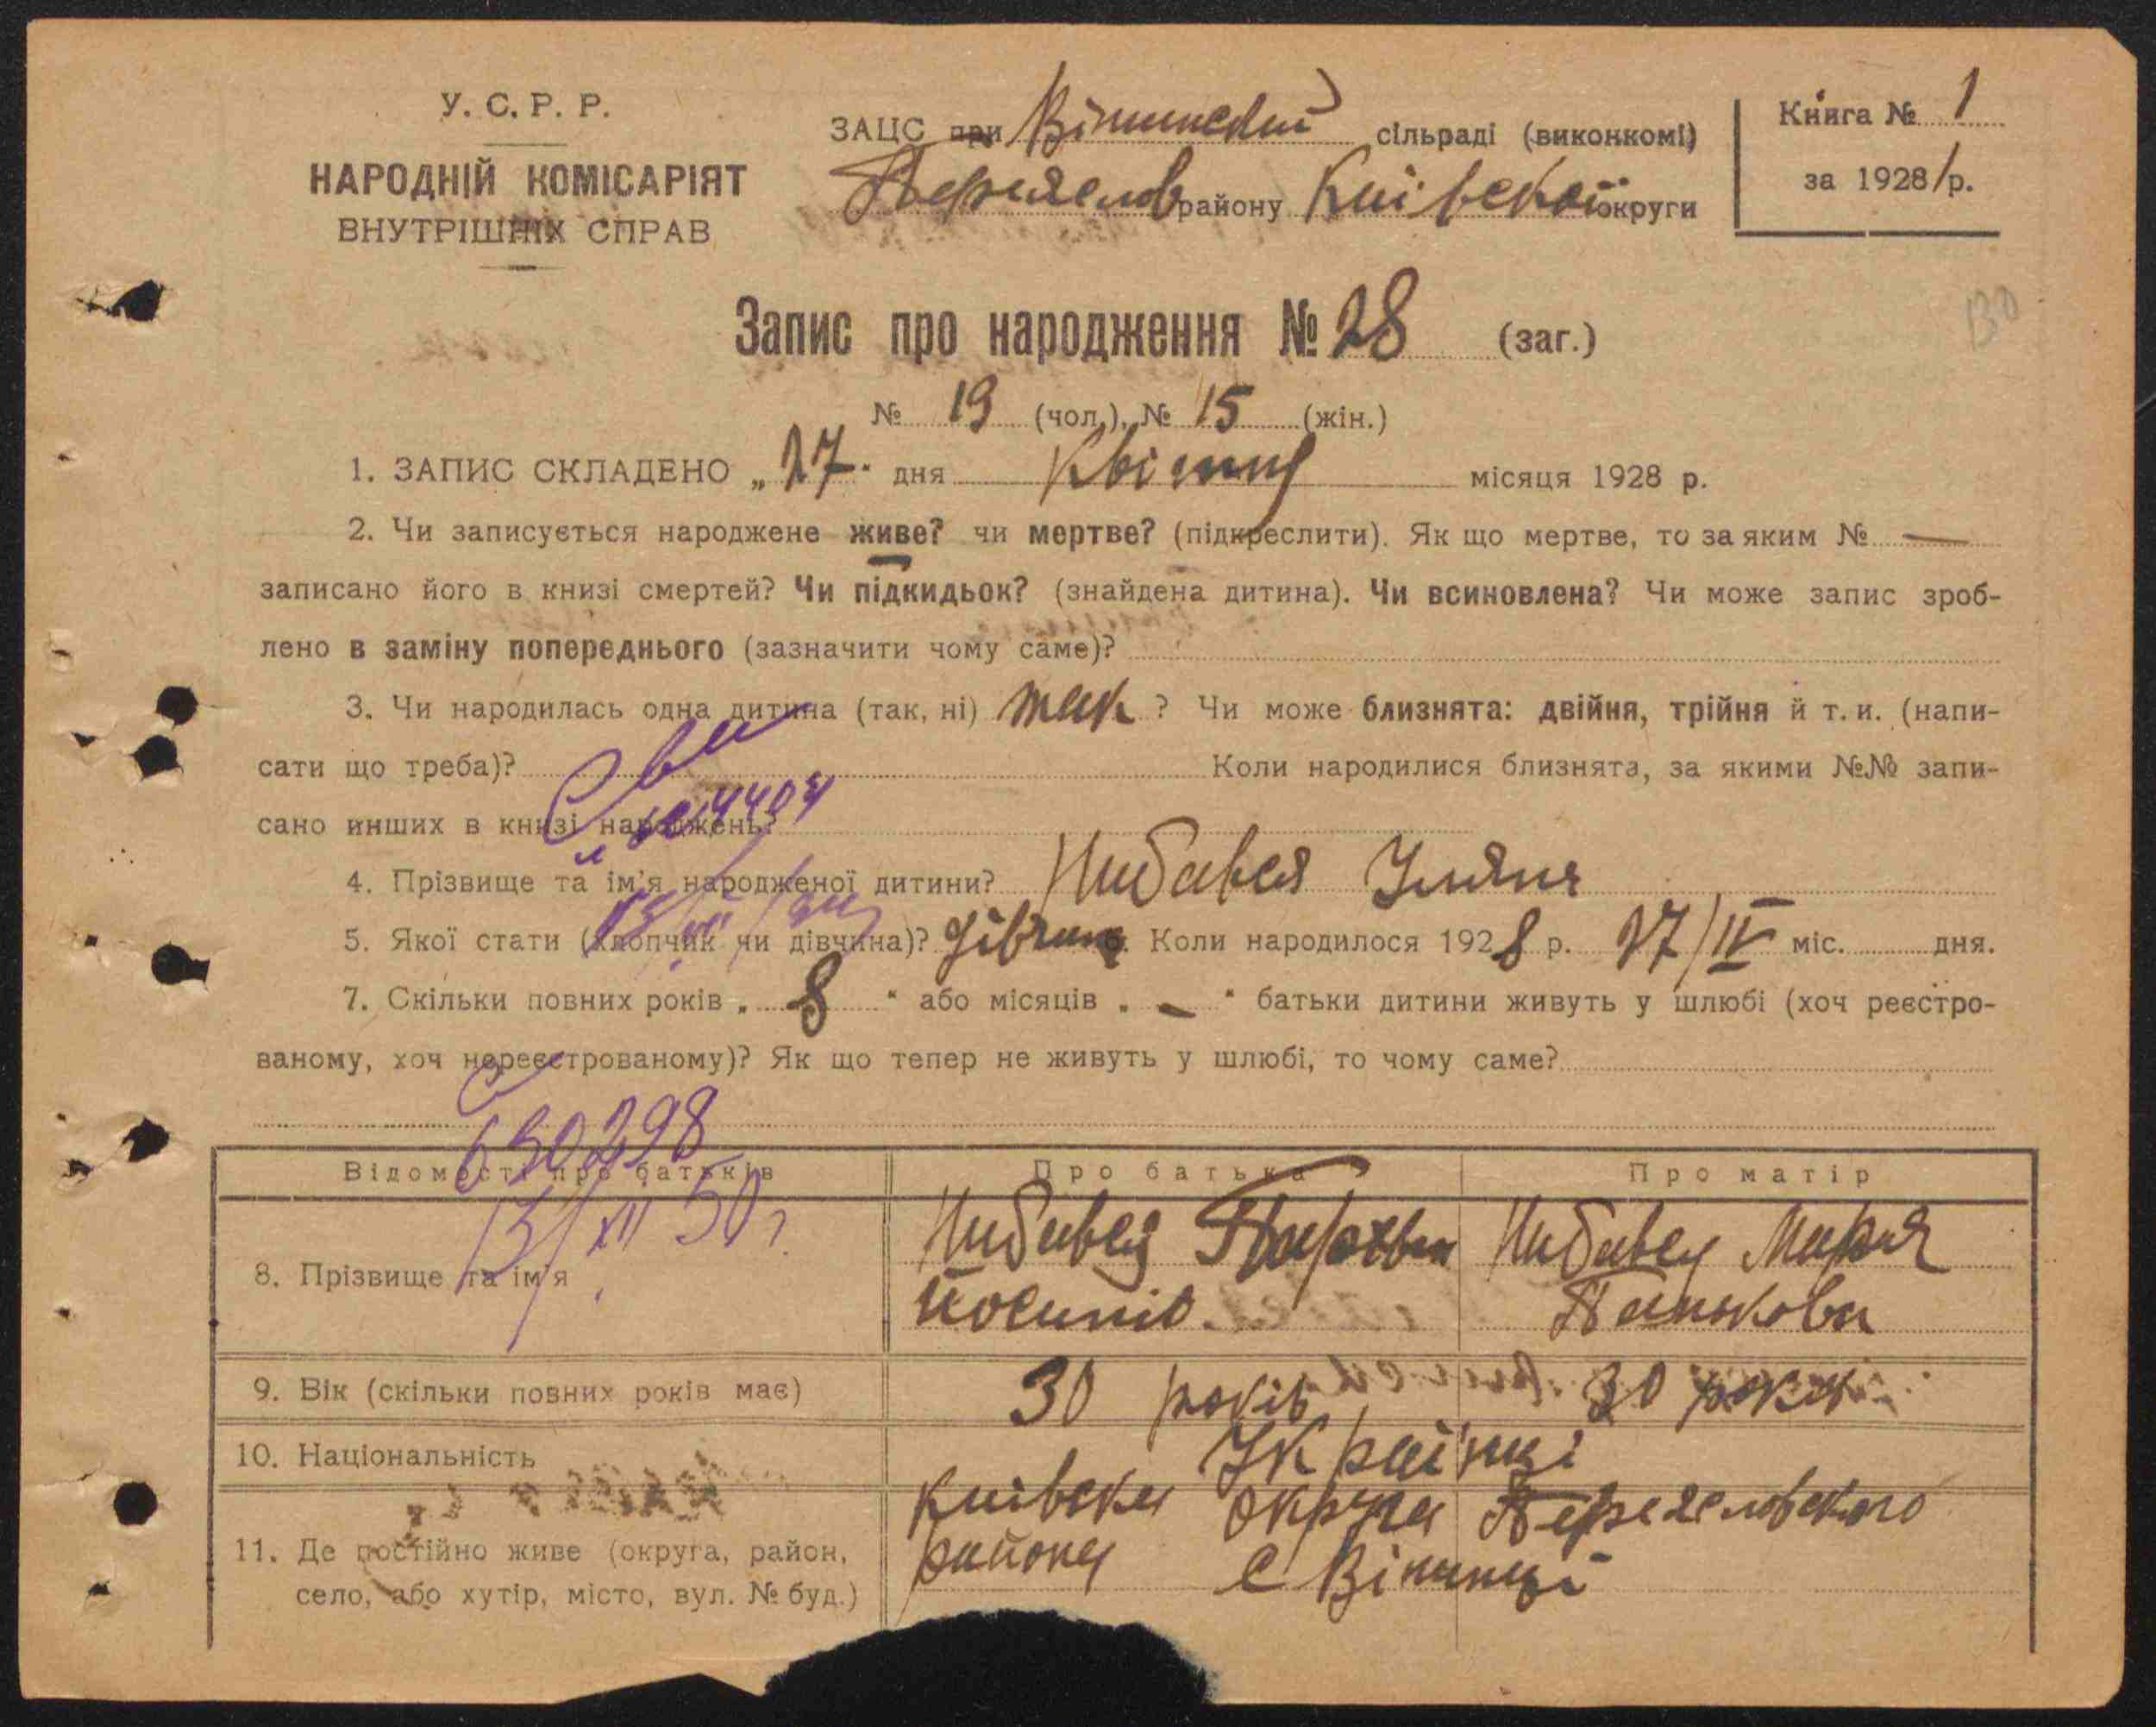 У. С. Р. Р.
НАРОДНІЙ КОМІСАРІЯТ
ВНУТРІШНІХ СПРАВ
ЗАЦС при сільраді (виконкомі)
району Київської округи
Книга № 1
за 1928/р.
130
Запис про народження № 28 (заг.)
№ 13 (чол.), № 15 (жін.)
1. ЗАПИС СКЛАДЕНО „ 27 " дня Квітня місяця 1928 р.
2. Чи записується народжене живе? чи мертве? (підкреслити). Як що мертве, то за яким № —
записано його в книзі смертей? Чи підкидьок? (знайдена дитина). Чи всиновлена? Чи може запис зроб-
лено в заміну попереднього (зазначити чому саме)?
3. Чи народилась одна дитина (так, ні) так ? Чи може близнята: двійня, трійня й т. и. (напи-
сати що треба)? Коли народилися близнята, за якими №№ запи-
сано инших в книзі народжень?
4. Прізвище та ім'я народженої дитини?
5. Якої стати (хлопчик чи дівчина)? дівчина. Коли народилося 1928 р. 27/IV міс. дня.
7. Скільки повних років „ 8 " або місяців „ — " батьки дитини живуть у шлюбі (хоч реєстро-
ваному, хоч нереєстрованому)? Як що тепер не живуть у шлюбі, то чому саме?
650298
13/XII 50 г.
Відомості про батьків Про батька Про матір
8. Прізвище та ім'я Марія
Йосипів. Панькова
9. Вік (скільки повних років має) 30 років 30 років
10. Національність Українці
11. Де постійно живе (округа, район,
село, або хутір, місто, вул. № буд.)
Київска округа
району с